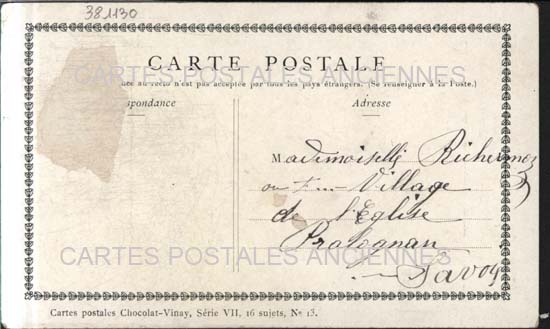 381130
CARTE POSTALE
CARTES POSTALES ANCIENNES
au recto n'est pas acceptée par tous les pays étrangers. (Se renseigner à la Poste.)
pondance
Adresse
Mademoiselle Richermoz
Village
de l'Eglise
Pralognan
Savoie
CARTES POSTALES ANCIENNES
Cartes postales Chocolat-Vinay, Série VII, 16 sujets, No 13.